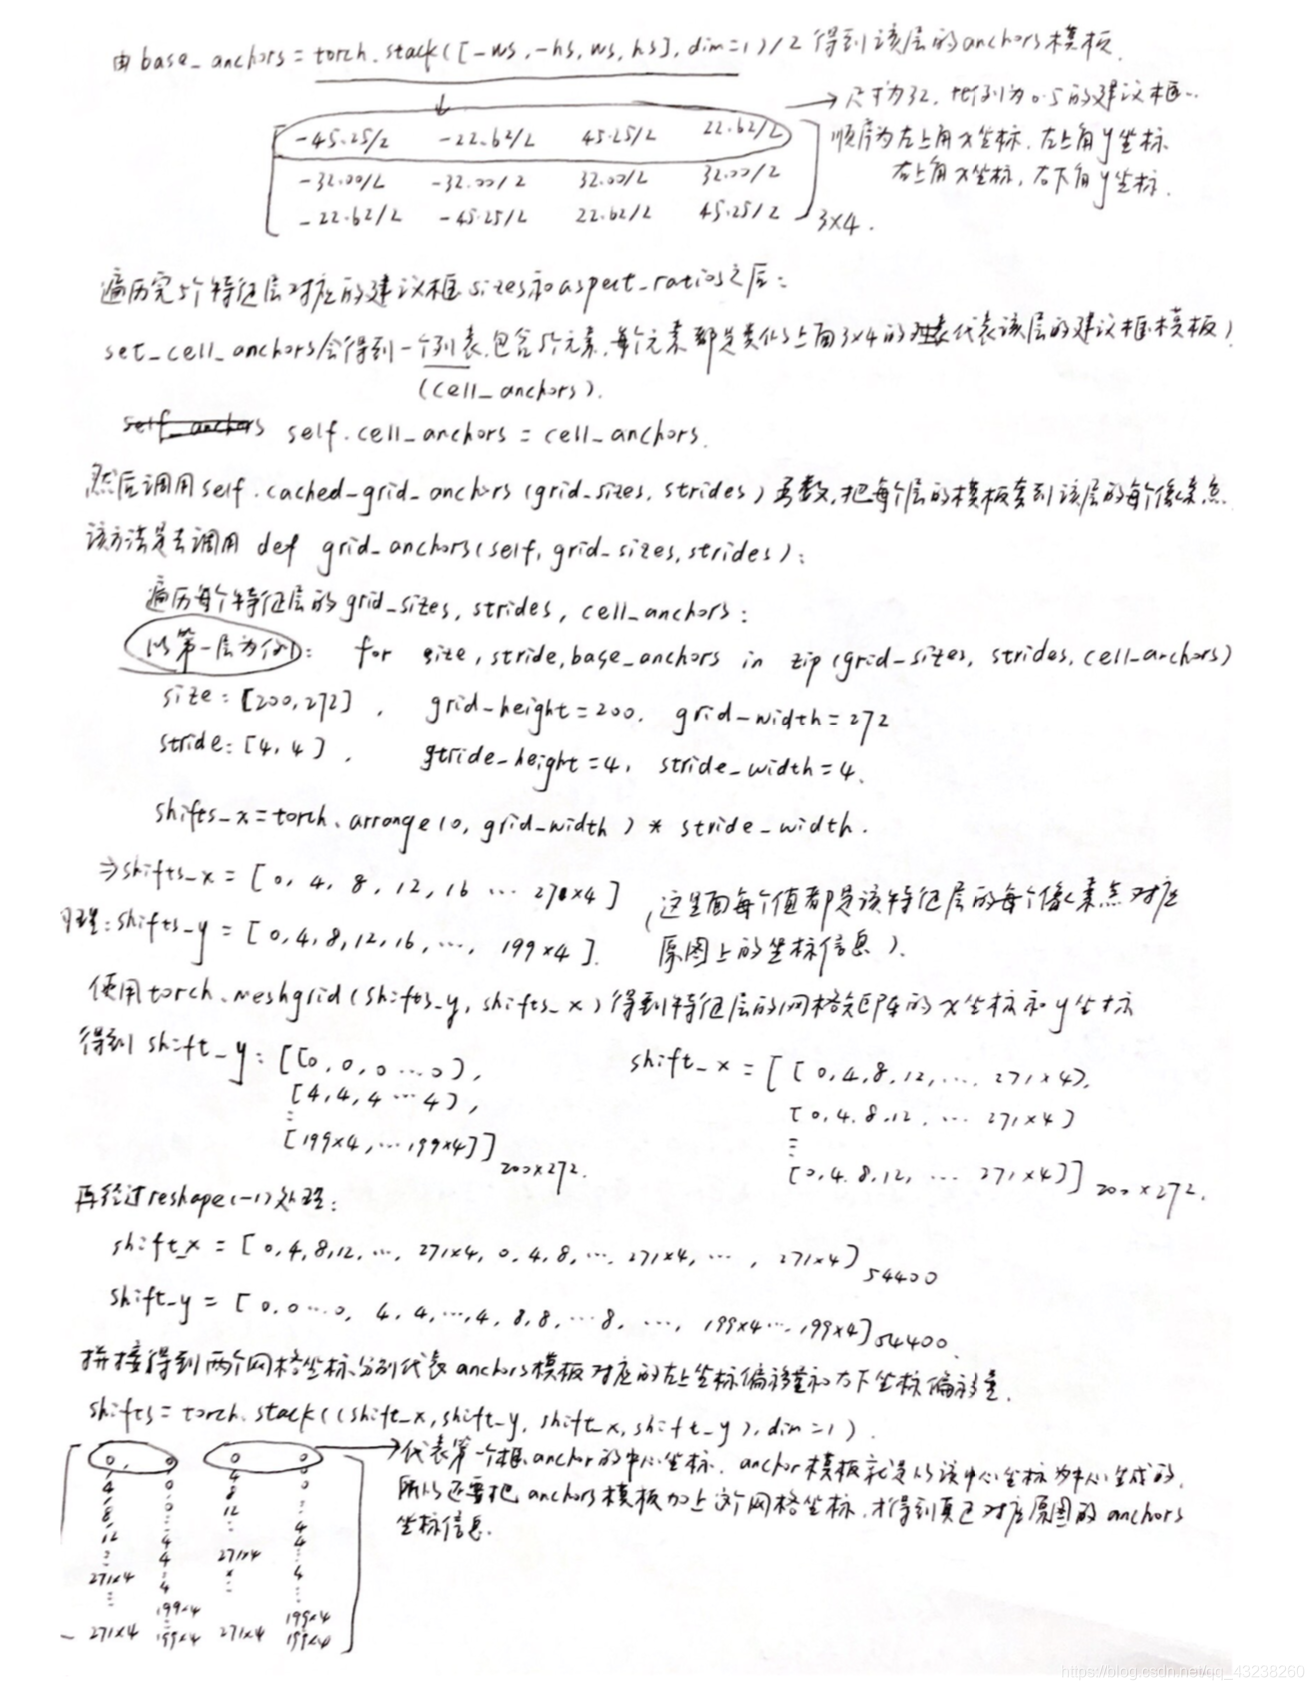 由 base_anchors = torch.stack([-ws, -hs, ws, hs], dim=1)/2 得到该层的anchors模板.
-45.25/2 -22.62/2 45.25/2 22.62/2
-32.00/2 -32.00/2 32.00/2 32.00/2
-22.62/2 -45.25/2 22.62/2 45.25/2
3×4.
→尺寸为32, 比例为0.5的建议框..
顺序为左上角x坐标, 左上角y坐标
右上角x坐标, 右下角y坐标.
遍历完5个特征层对应的建议框sizes和aspect_ratios之后:
set_cell_anchors会得到一个列表,包含5个元素,每个元素都是类似上面3×4的 代表该层的建议框模板)
(cell_anchors).
self_anchors self.cell_anchors = cell_anchors.
然后调用self.cached_grid_anchors(grid_sizes, strides)函数,把每个层的模板套到该层的每个像素点
该方法是去调用 def grid_anchors(self, grid_sizes, strides):
遍历每个特征层的grid_sizes, strides, cell_anchors:
以第一层为例: for size, stride, base_anchors in zip(grid_sizes, strides, cell_anchors)
size: [200, 272] , grid_height=200. grid_width=272
stride: [4, 4] . stride_height=4, stride_width=4.
shifts_x = torch.arrange(0, grid_width) * stride_width.
⇒shifts_x = [0, 4, 8, 12, 16 ... 271×4]
(这里面每个值都是该特征层的每个像素点对应
同理: shifts_y = [0, 4, 8, 12, 16, ..., 199×4].
原图上的坐标信息).
使用torch.meshgrid(shifts_y, shifts_x)得到特征层的网格矩阵的x坐标和y坐标
得到 shift_y: [[0, 0, 0 ... 0],
[4, 4, 4 ... 4],
⋮
[199×4, ... 199×4]]200×272.
shift_x = [[0, 4, 8, 12, ... 271×4],
[0, 4, 8, 12, ... 271×4]
⋮
[0, 4, 8, 12, ... 271×4]]200×272.
再经过reshape(-1)处理:
shift_x = [0, 4, 8, 12, ..., 271×4, 0, 4, 8, ... 271×4, ... , 271×4]54400
shift_y = [0, 0 ... 0, 4, 4, ..., 4, 8, 8, ... 8, ..., 199×4 ... 199×4]54400.
拼接得到两个网格坐标,分别代表anchors模板对应的左上坐标偏移量和右下坐标偏移量.
shifts = torch.stack((shift_x, shift_y, shift_x, shift_y), dim=1).
→代表第一个框anchor的中心坐标, anchor模板就是以该中心坐标为中心生成的,
所以还要把anchors模板加上这个网格坐标,才得到真正对应原图的anchors
坐标信息.
0, 0 0 0
4 0 4 0
8 0 8 ⋮
12 4 12 4
⋮ 4 271×4 4
271×4 4 ⋮ 4
⋮ 199×4 199×4
271×4 199×4 271×4 199×4
https://blog.csdn.net/qq_43238260